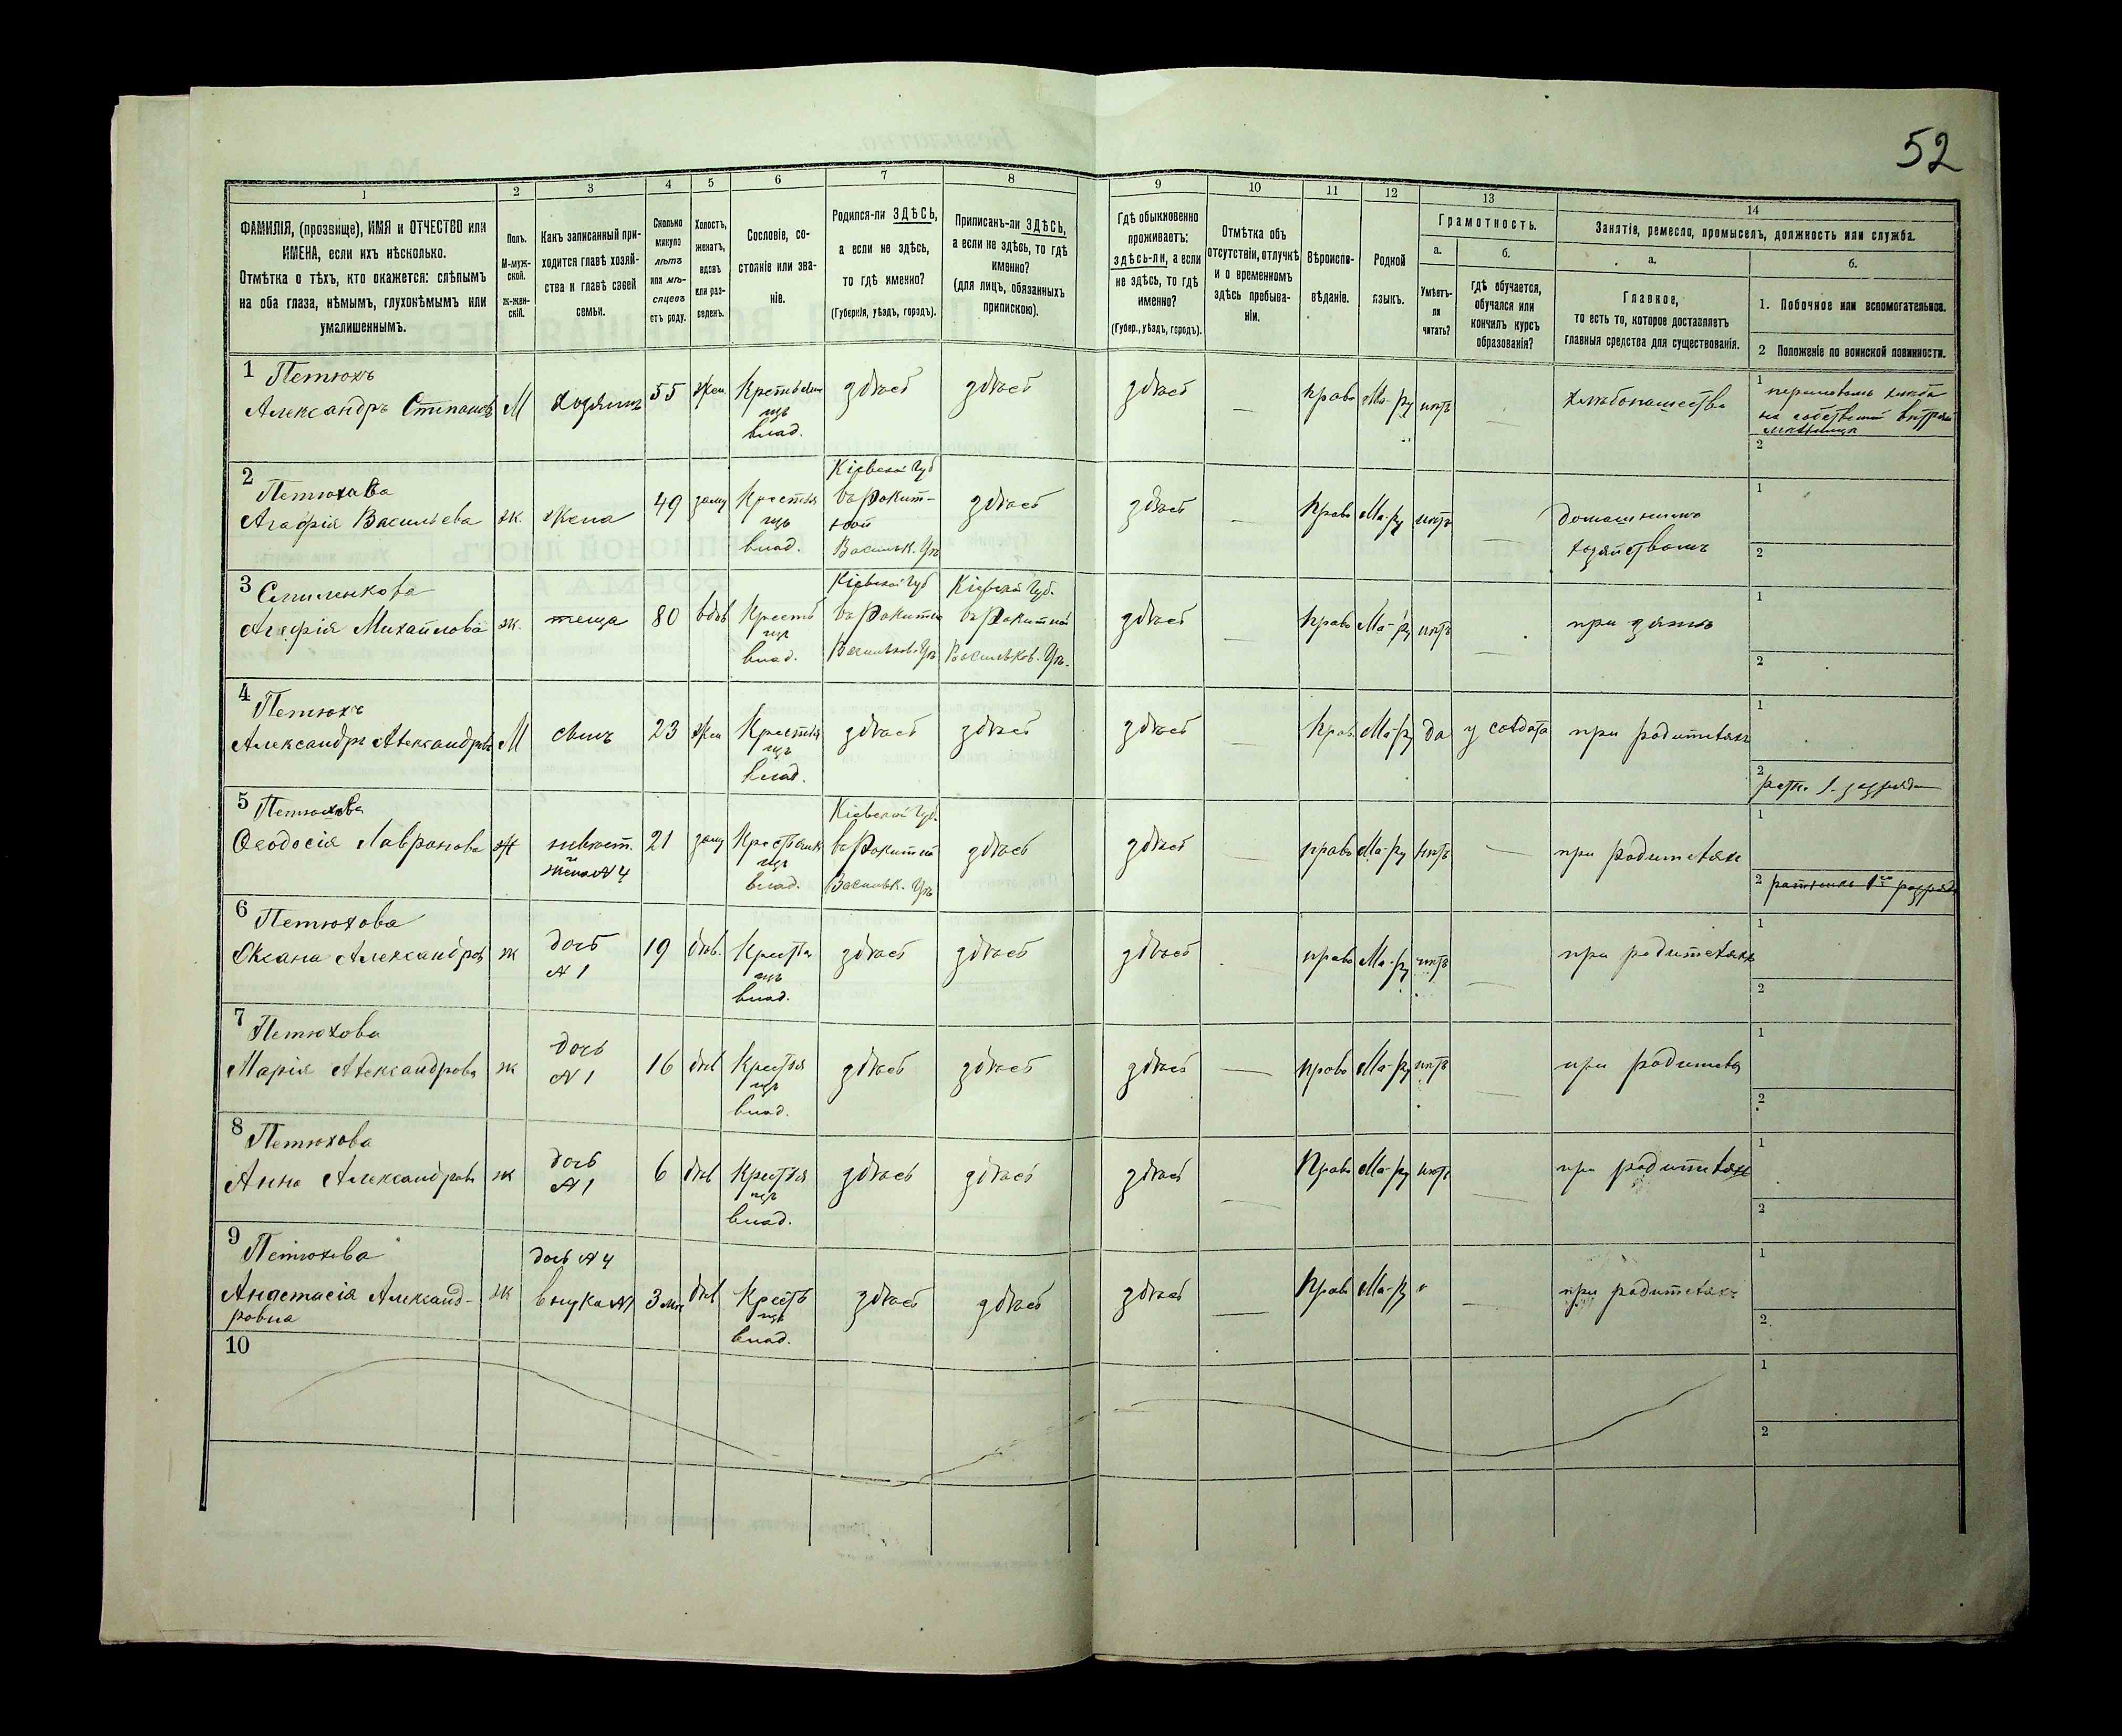 52
1
2
3
4
5
6
7
8
9
10
11
12
13
14
ФАМИЛІЯ, (прозвище), ИМЯ и ОТЧЕСТВО или
ИМЕНА, если ихъ нѣсколько.
Отмѣтка о тѣхъ, кто окажется: слѣпымъ
на оба глаза, нѣмымъ, глухонѣмымъ или
умалишеннымъ.
Полъ.
М-муж-
ской.
ж-жен-
скій.
Какъ записанный при-
ходится главѣ хозяй-
ства и главѣ своей
семьи.
Сколько
минуло
лѣтъ
или мѣ-
сяцевъ
отъ роду.
Холостъ,
женатъ,
вдовъ
или раз-
веденъ.
Сословіе, со-
стояніе или зва-
ніе.
Родился-ли ЗДѢСЬ,
а если не здѣсь,
то гдѣ именно?
(Губернія, уѣздъ, городъ).
Приписанъ-ли ЗДѢСЬ,
а если не здѣсь, то гдѣ
именно?
(для лицъ, обязанныхъ
припискою).
Гдѣ обыкновенно
проживаетъ:
здѣсь-ли, а если
не здѣсь, то гдѣ
именно?
(Губер., уѣздъ, городъ).
Отмѣтка объ
отсутствіи, отлучкѣ
и о временномъ
здѣсь пребыва-
ніи.
Вѣроиспо-
вѣданіе.
Родной
языкъ.
Грамотность.
а.
Умѣетъ-
ли
читать?
б.
гдѣ обучается,
обучался или
кончилъ курсъ
образованія?
Занятіе, ремесло, промыселъ, должность или служба.
а.
Главное,
то есть то, которое доставляетъ
главныя средства для существованія.
б.
1. Побочное или вспомогательное.
2 Положеніе по воинской повинности.
1 Петюхъ
Александръ Степановъ М хозяинъ 55 жен здѣсь здѣсь здѣсь — право Ма-ру нѣтъ — хлѣбопашество
влад.
1
2
2 Петюхова
Агафія Васильева ж. жена 49 заму здѣсь здѣсь — право Ма-ру нѣтъ —
влад.
Кіевской Губ
въ Рокит-
ной
Васильк. Уѣ
домашнимъ
хозяйствомъ
1
2
3
Михайлова ж. теща 80 вдов здѣсь — право Ма-ру нѣтъ — при зятѣ
влад.
Кіевской Губ
Кіевской Губ.
Васильков. Уѣ
Васильков. Уѣ.
1
2
4 Петюхъ
Александръ Александровъ М сынъ 23 жен здѣсь здѣсь здѣсь — прав. Ма-ру да у солдата при родителяхъ
влад.
1
2
5 Петюхова
Феодосія ж 21 заму здѣсь здѣсь право Ма-ру нѣтъ — при родителях
жена N 4
влад.
Кіевской Губ.
Васильк. Уѣ
1
2 ратникъ 1го разряда
6 Петюхова
Оксана Александров ж дочь 19 дѣв. здѣсь здѣсь здѣсь право Ма-ру нѣтъ — при родителяхъ
N 1
влад.
1
2
7 Петюхова
Марія Александрова ж дочь 16 дѣв здѣсь здѣсь здѣсь — право Ма-ру нѣтъ — при родителя
N 1
влад.
1
2
8 Петюхова
Анна Александров ж дочь 6 дѣв здѣсь здѣсь здѣсь — право Ма-ру нѣтъ — при родителяхъ
N 1
влад.
1
2
9 Петюхова
дочь N 4
Анастасія Александ- ж внука N1 3 мѣ дѣв Кресть здѣсь здѣсь здѣсь — право Ма-ру — при родителяхъ
ровна
влад.
1
2
10
1
2